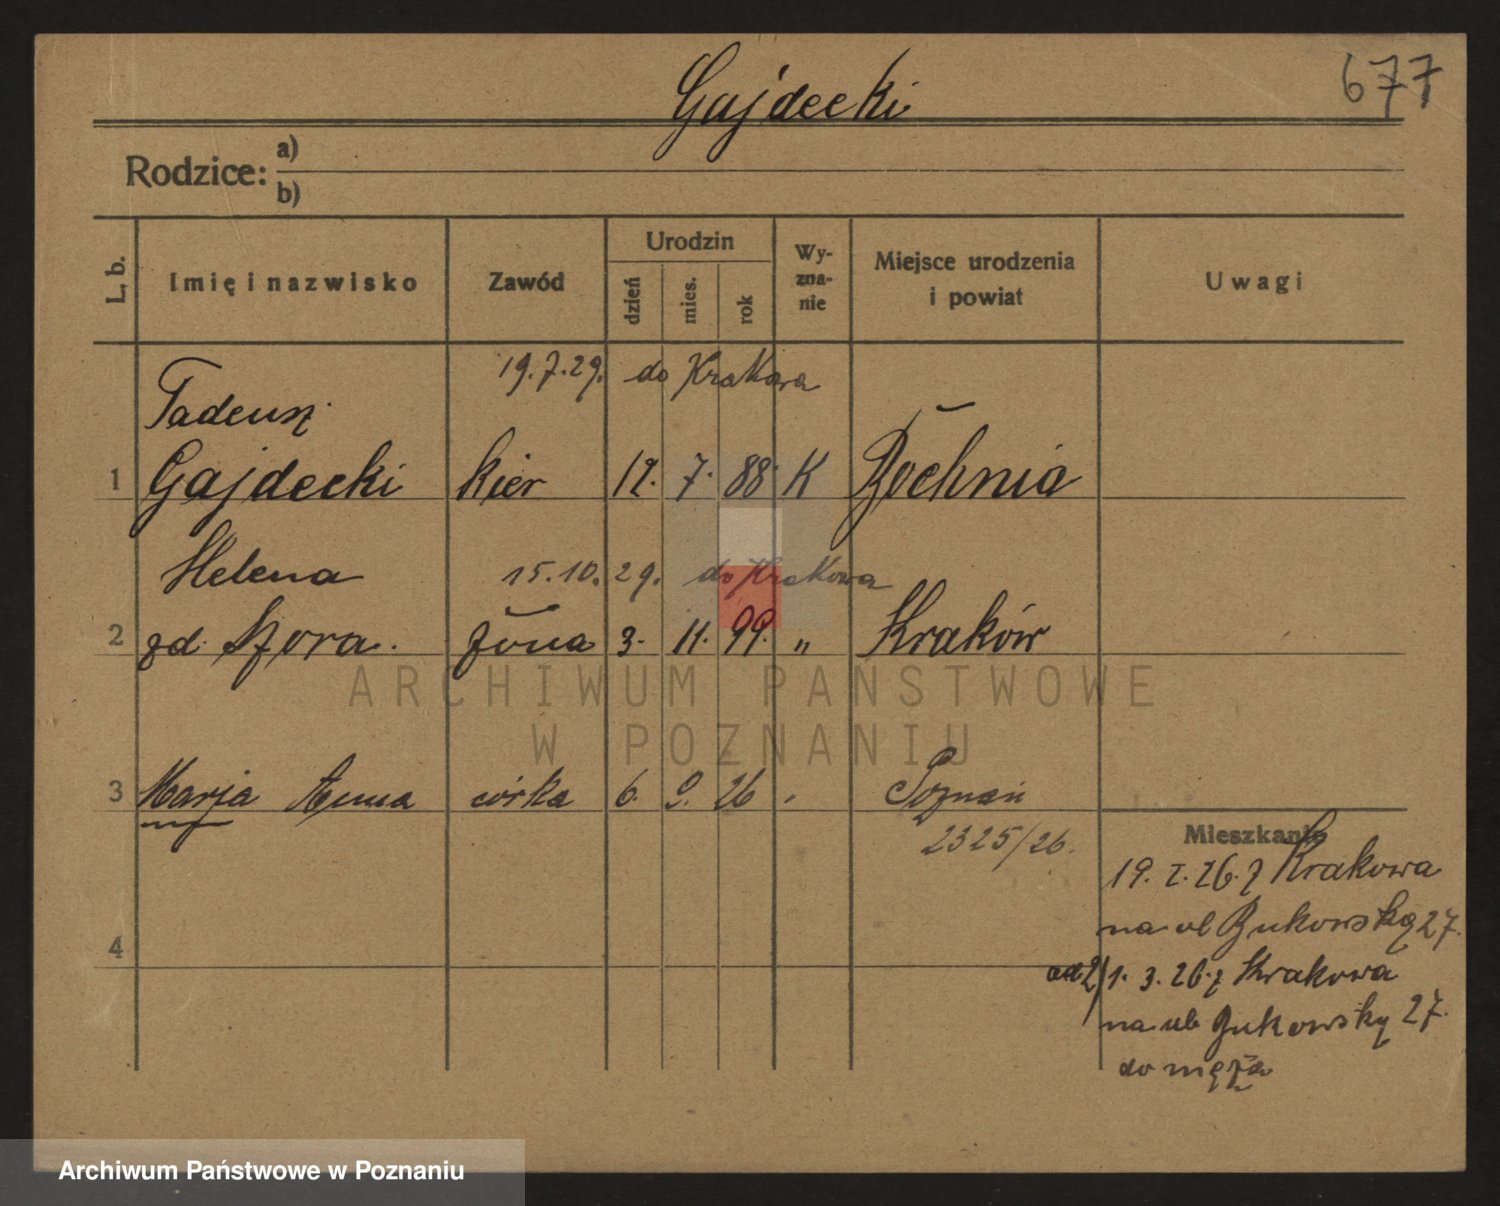 Gajdecki
677
Rodzice: a)
b)
L. b.
Imię i nazwisko
Zawód
Urodzin
dzień
mies.
rok
Wy-
zna-
nie
Miejsce urodzenia
i powiat
Uwagi
19.7.29. do Krakowa
Tadeusz
1 Gajdecki kier 12. 7. 88 K Bochnia
Helena 15.10.29. do Krakowa
2 zd. Szora żona 3. 11. 99. „ Kraków
ARCHIWUM PAŃSTWOWE
W POZNANIU
3 Marja Anna córka 6. 9. 26 Poznań
2325/26.
Mieszkanie
19. I. 26. z Krakowa
na ul Bukowską 27.
4
ad 2/ 1. 3. 26. z Krakowa
na ul. Bukowską 27.
do męża
Archiwum Państwowe w Poznaniu